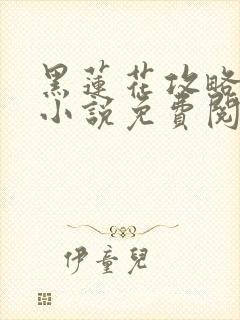 黑蓮花攻略
小說免費閱
伊童兒